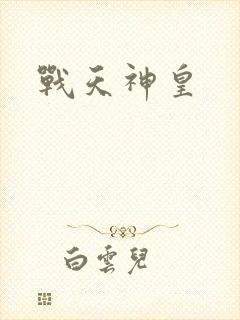 戰天神皇
白雲兒